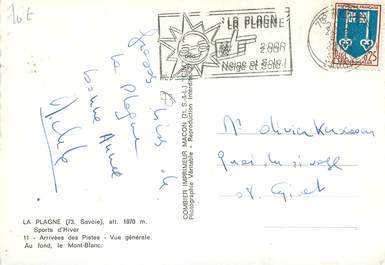 10 E
LA PLAGNE
2.000
Neige et Soleil
0,25
Grosses bises de
La Plagne
bonne Année
Michèle
COMBIER IMPRIMEUR MACON (71, S.-&-L.)
Photographie Véritable - Reproduction Interdite
Mr olivier
Quai du rivage
08. Givet
LA PLAGNE (73. Savoie), alt. 1970 m.
Sports d'Hiver
11 - Arrivées des Pistes - Vue générale.
Au fond, le Mont-Blanc.